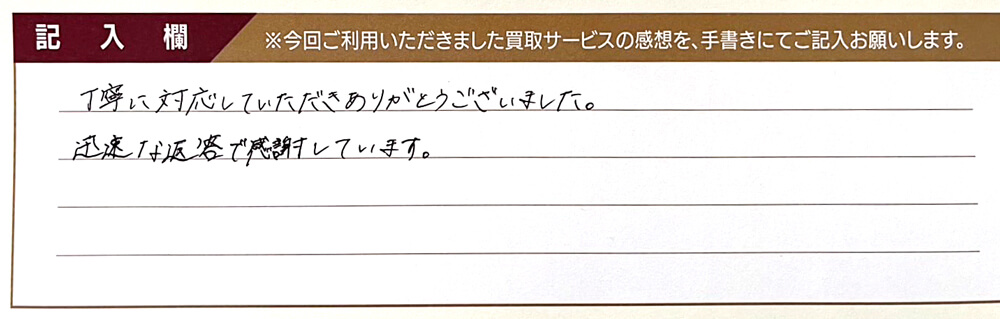 記入欄
※今回ご利用いただきました買取サービスの感想を、手書きにてご記入お願いします。
丁寧に対応していただきありがとうございました。
迅速な返答で感謝しています。